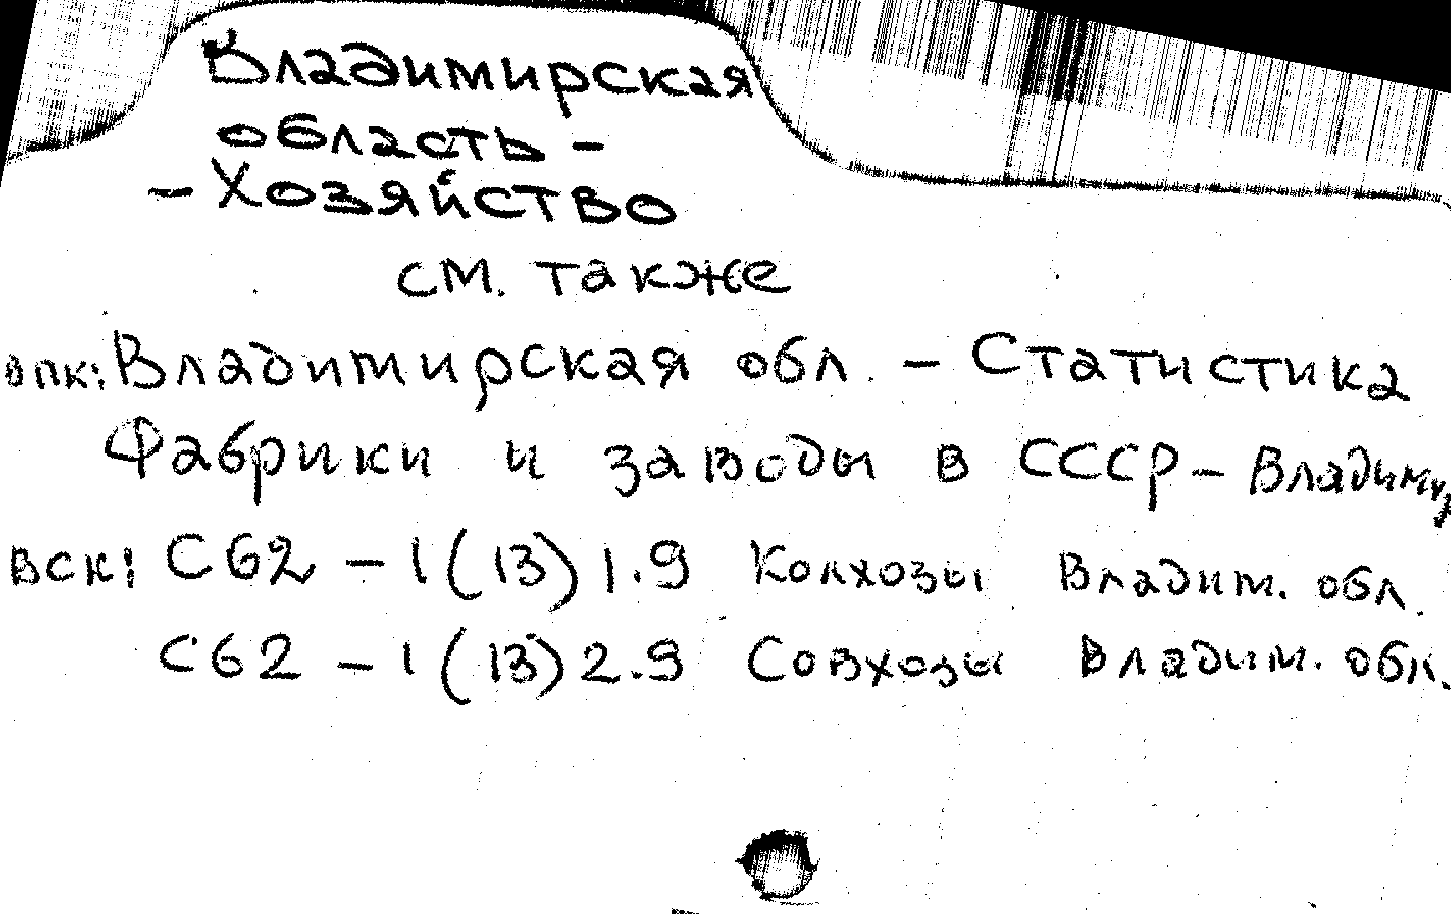 Владимирская
область -
- Хозяйство
см. также
ОПК: Владимирская обл. - Статистика
Фабрики и заводы в СССР - Владимир
ВСК: С62 - 1(13)1.9 Колхозы Владим. обл.
С62 - 1(13)2.9 Совхозы Владим. обл.